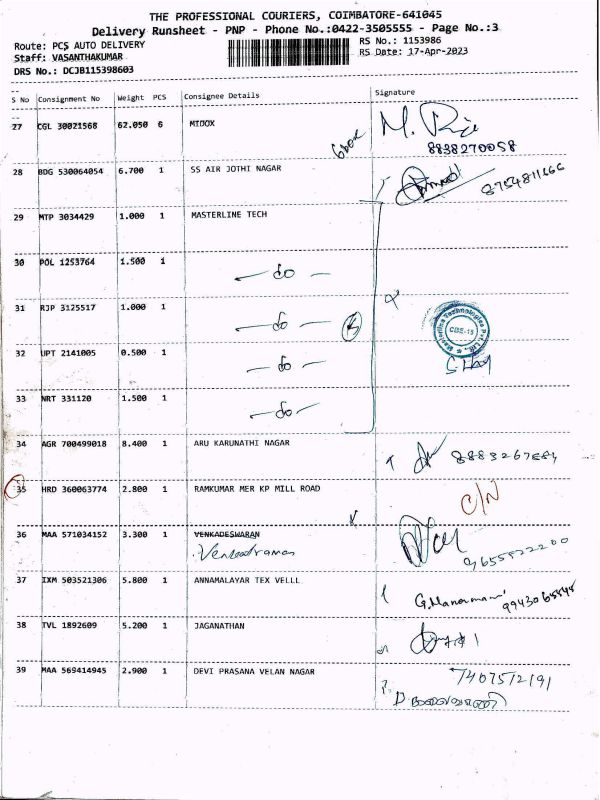 THE PROFESSIONAL COURIERS, COIMBATORE-641045
Delivery Runsheet - PNP - Phone No.:0422-3505555 - Page No.:3
Route: PCS AUTO DELIVERY
RS No.: 1153986
Staff: VASANTHAKUMAR
RS Date: 17-Apr-2023
DRS No.: DCJB115398603
S No Consignment No Weight PCS Consignee Details Signature
27 CGL 30021568 62.050 6 MIDOX
8838270058
28 BDG 530064054 6.700 1 SS AIR JOTHI NAGAR
8754811666
29 MTP 3034429 1.000 1 MASTERLINE TECH
30 POL 1253764 1.500 1 — do —
31 RJP 3125517 1.000 1 — do — 5
Masterline Technologies Pvt. Ltd.
CBE-15
32 UPT 2141005 0.500 1 — do —
33 NRT 331120 1.500 1 — do —
34 AGR 700499018 8.400 1 ARU KARUNATHI NAGAR
35 HRD 360063774 2.800 1 RAMKUMAR MER KP MILL ROAD C/N
36 MAA 571034152 3.300 1 VENKADESWARAN
Venkadraman
9655522200
37 IXM 503521306 5.800 1 ANNAMALAYAR TEX VELLL
38 TVL 1892609 5.200 1 JAGANATHAN
39 MAA 569414945 2.900 1 DEVI PRASANA VELAN NAGAR